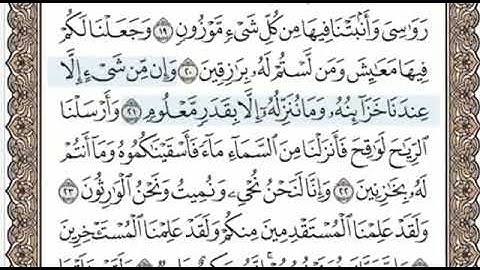 رَوَٰسِيَ وَأَنۢبَتْنَا فِيهَا مِن كُلِّ شَىْءٍ مَّوْزُونٍ ١٩ وَجَعَلْنَا لَكُمْ
فِيهَا مَعَٰيِشَ وَمَن لَّسْتُمْ لَهُۥ بِرَٰزِقِينَ ٢٠ وَإِن مِّن شَىْءٍ إِلَّا
عِندَنَا خَزَآئِنُهُۥ وَمَا نُنَزِّلُهُۥٓ إِلَّا بِقَدَرٍ مَّعْلُومٍ ٢١ وَأَرْسَلْنَا
ٱلرِّيَٰحَ لَوَٰقِحَ فَأَنزَلْنَا مِنَ ٱلسَّمَآءِ مَآءً فَأَسْقَيْنَٰكُمُوهُ وَمَآ أَنتُمْ
لَهُۥ بِخَٰزِنِينَ ٢٢ وَإِنَّا لَنَحْنُ نُحْىِۦ وَنُمِيتُ وَنَحْنُ ٱلْوَٰرِثُونَ ٢٣
وَلَقَدْ عَلِمْنَا ٱلْمُسْتَقْدِمِينَ مِنكُمْ وَلَقَدْ عَلِمْنَا ٱلْمُسْتَـْٔخِرِينَ